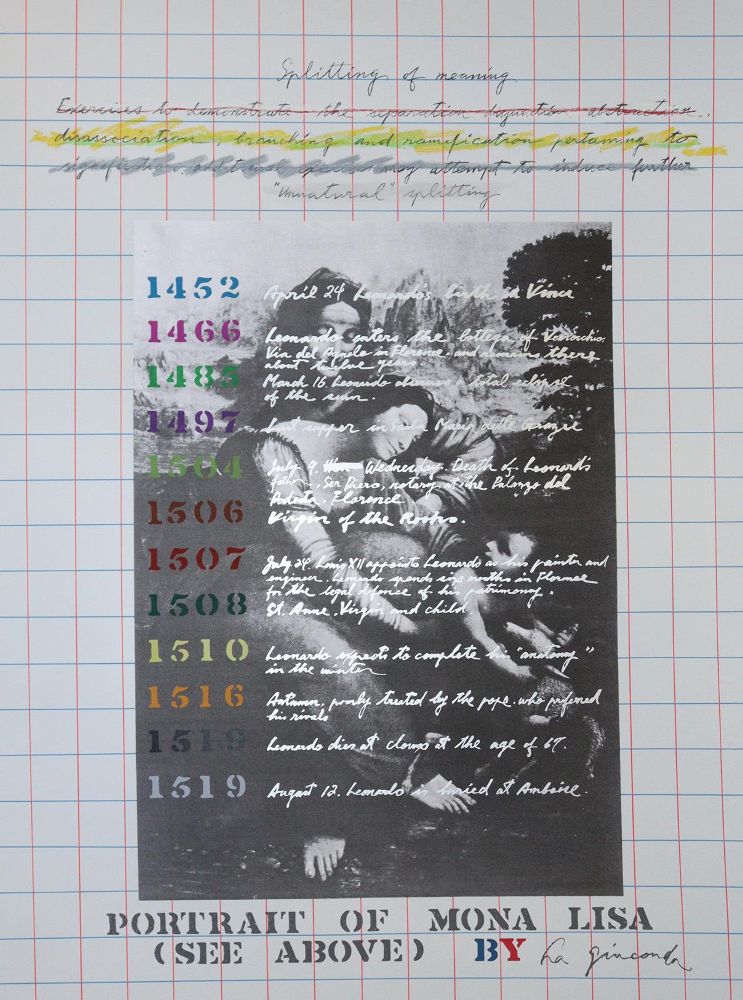 Splitting of meaning
Exercises to demonstrate the separation disjunction abstraction,
disassociation, branching and ramification pertaining to
signification. additional may attempt to induce further
"unnatural" splitting
1452 April 24 Leonardo's birth in Vinci
1466 Leonardo enters the bottega of Verrocchio.
Via del Agnolo in Florence. and remains there
about twelve years.
1485 March 16. Leonardo observes a total eclipse
of the sun.
1497 Last supper in Santa Maria delle Grazie
1504 July 9. Wednesday. Death of Leonard's
father. Ser Piero, notary at the Palazzo del
Podesta. Florence
1506 Virgin of the Rocks.
1507 July 24. Louis XII appoints Leonardo as his painter and
engineer. Leonardo spends six months in Florence
for the legal defence of his patrimony.
1508 St. Anne. Virgin and child.
1510 Leonardo expects to complete his "anatomy"
in the winter
1516 Autumn, poorly treated by the pope. who preferred
his rivals
1519 Leonardo dies at cloux at the age of 67.
1519 August 12. Leonardo is buried at Amboise.
PORTRAIT OF MONA LISA
(SEE ABOVE) BY La Gioconda